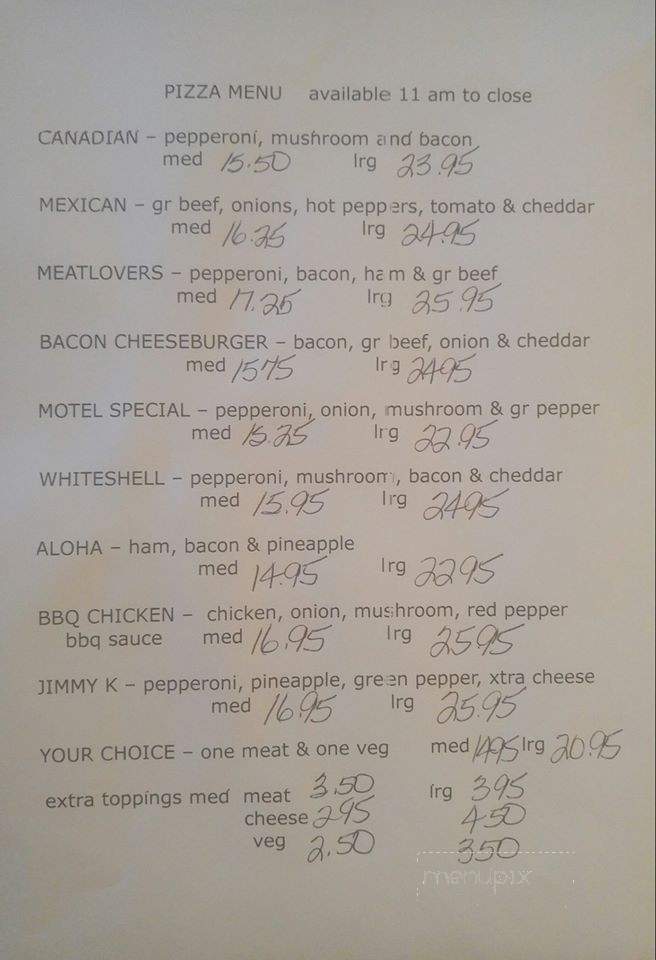 PIZZA MENU available 11 am to close
CANADIAN – pepperoni, mushroom and bacon
med 15.50 lrg 23.95
MEXICAN – gr beef, onions, hot peppers, tomato & cheddar
med 16.25 lrg 24.95
MEATLOVERS – pepperoni, bacon, ham & gr beef
med 17.25 lrg 25.95
BACON CHEESEBURGER – bacon, gr beef, onion & cheddar
med 1575 lrg 2495
MOTEL SPECIAL – pepperoni, onion, mushroom & gr pepper
med 15.25 lrg 22.95
WHITESHELL – pepperoni, mushroom, bacon & cheddar
med 15.95 lrg 2495
ALOHA – ham, bacon & pineapple
med 14.95 lrg 2295
BBQ CHICKEN – chicken, onion, mushroom, red pepper
bbq sauce med 16.95 lrg 2595
JIMMY K – pepperoni, pineapple, green pepper, xtra cheese
med 16.95 lrg 25.95
YOUR CHOICE – one meat & one veg med 1495 lrg 20.95
extra toppings med meat 3.50 lrg 395
cheese 295 450
veg 2.50 350
menupix